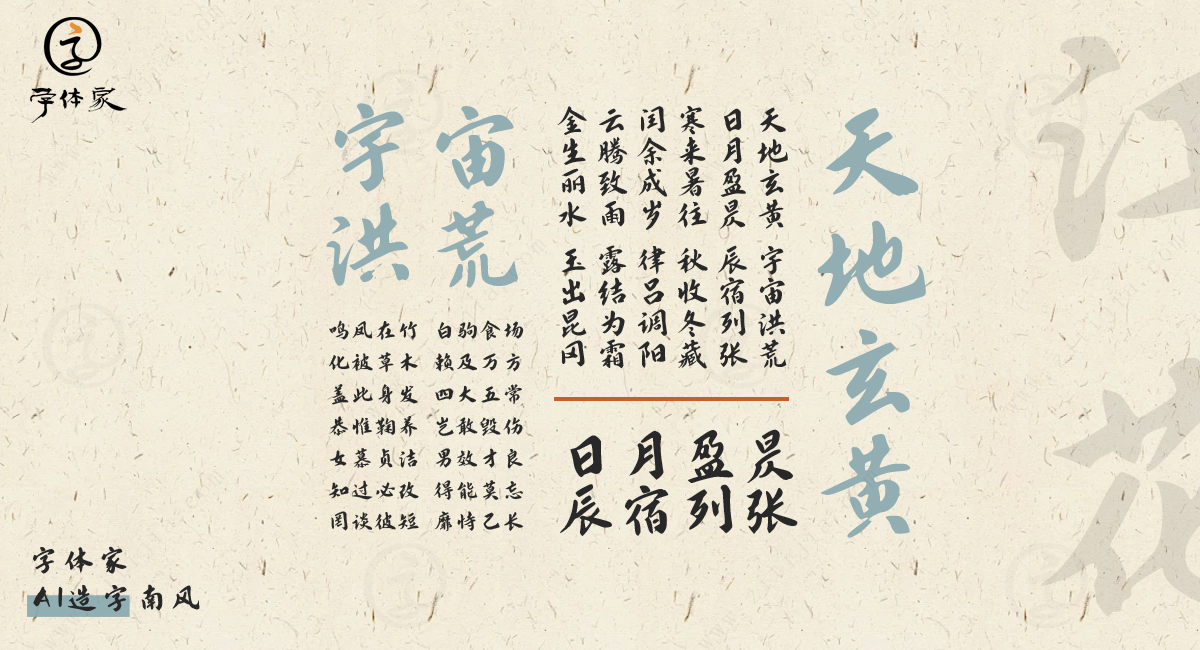 字
字体家
天地玄黄
天地玄黄 宇宙洪荒
日月盈昃 辰宿列张
寒来暑往 秋收冬藏
闰余成岁 律吕调阳
云腾致雨 露结为霜
金生丽水 玉出昆冈
日月盈昃
辰宿列张
宇宙
洪荒
鸣凤在竹 白驹食场
化被草木 赖及万方
盖此身发 四大五常
恭惟鞠养 岂敢毁伤
女慕贞洁 男效才良
知过必改 得能莫忘
罔谈彼短 靡恃己长
字体家
AI造字南风
江花